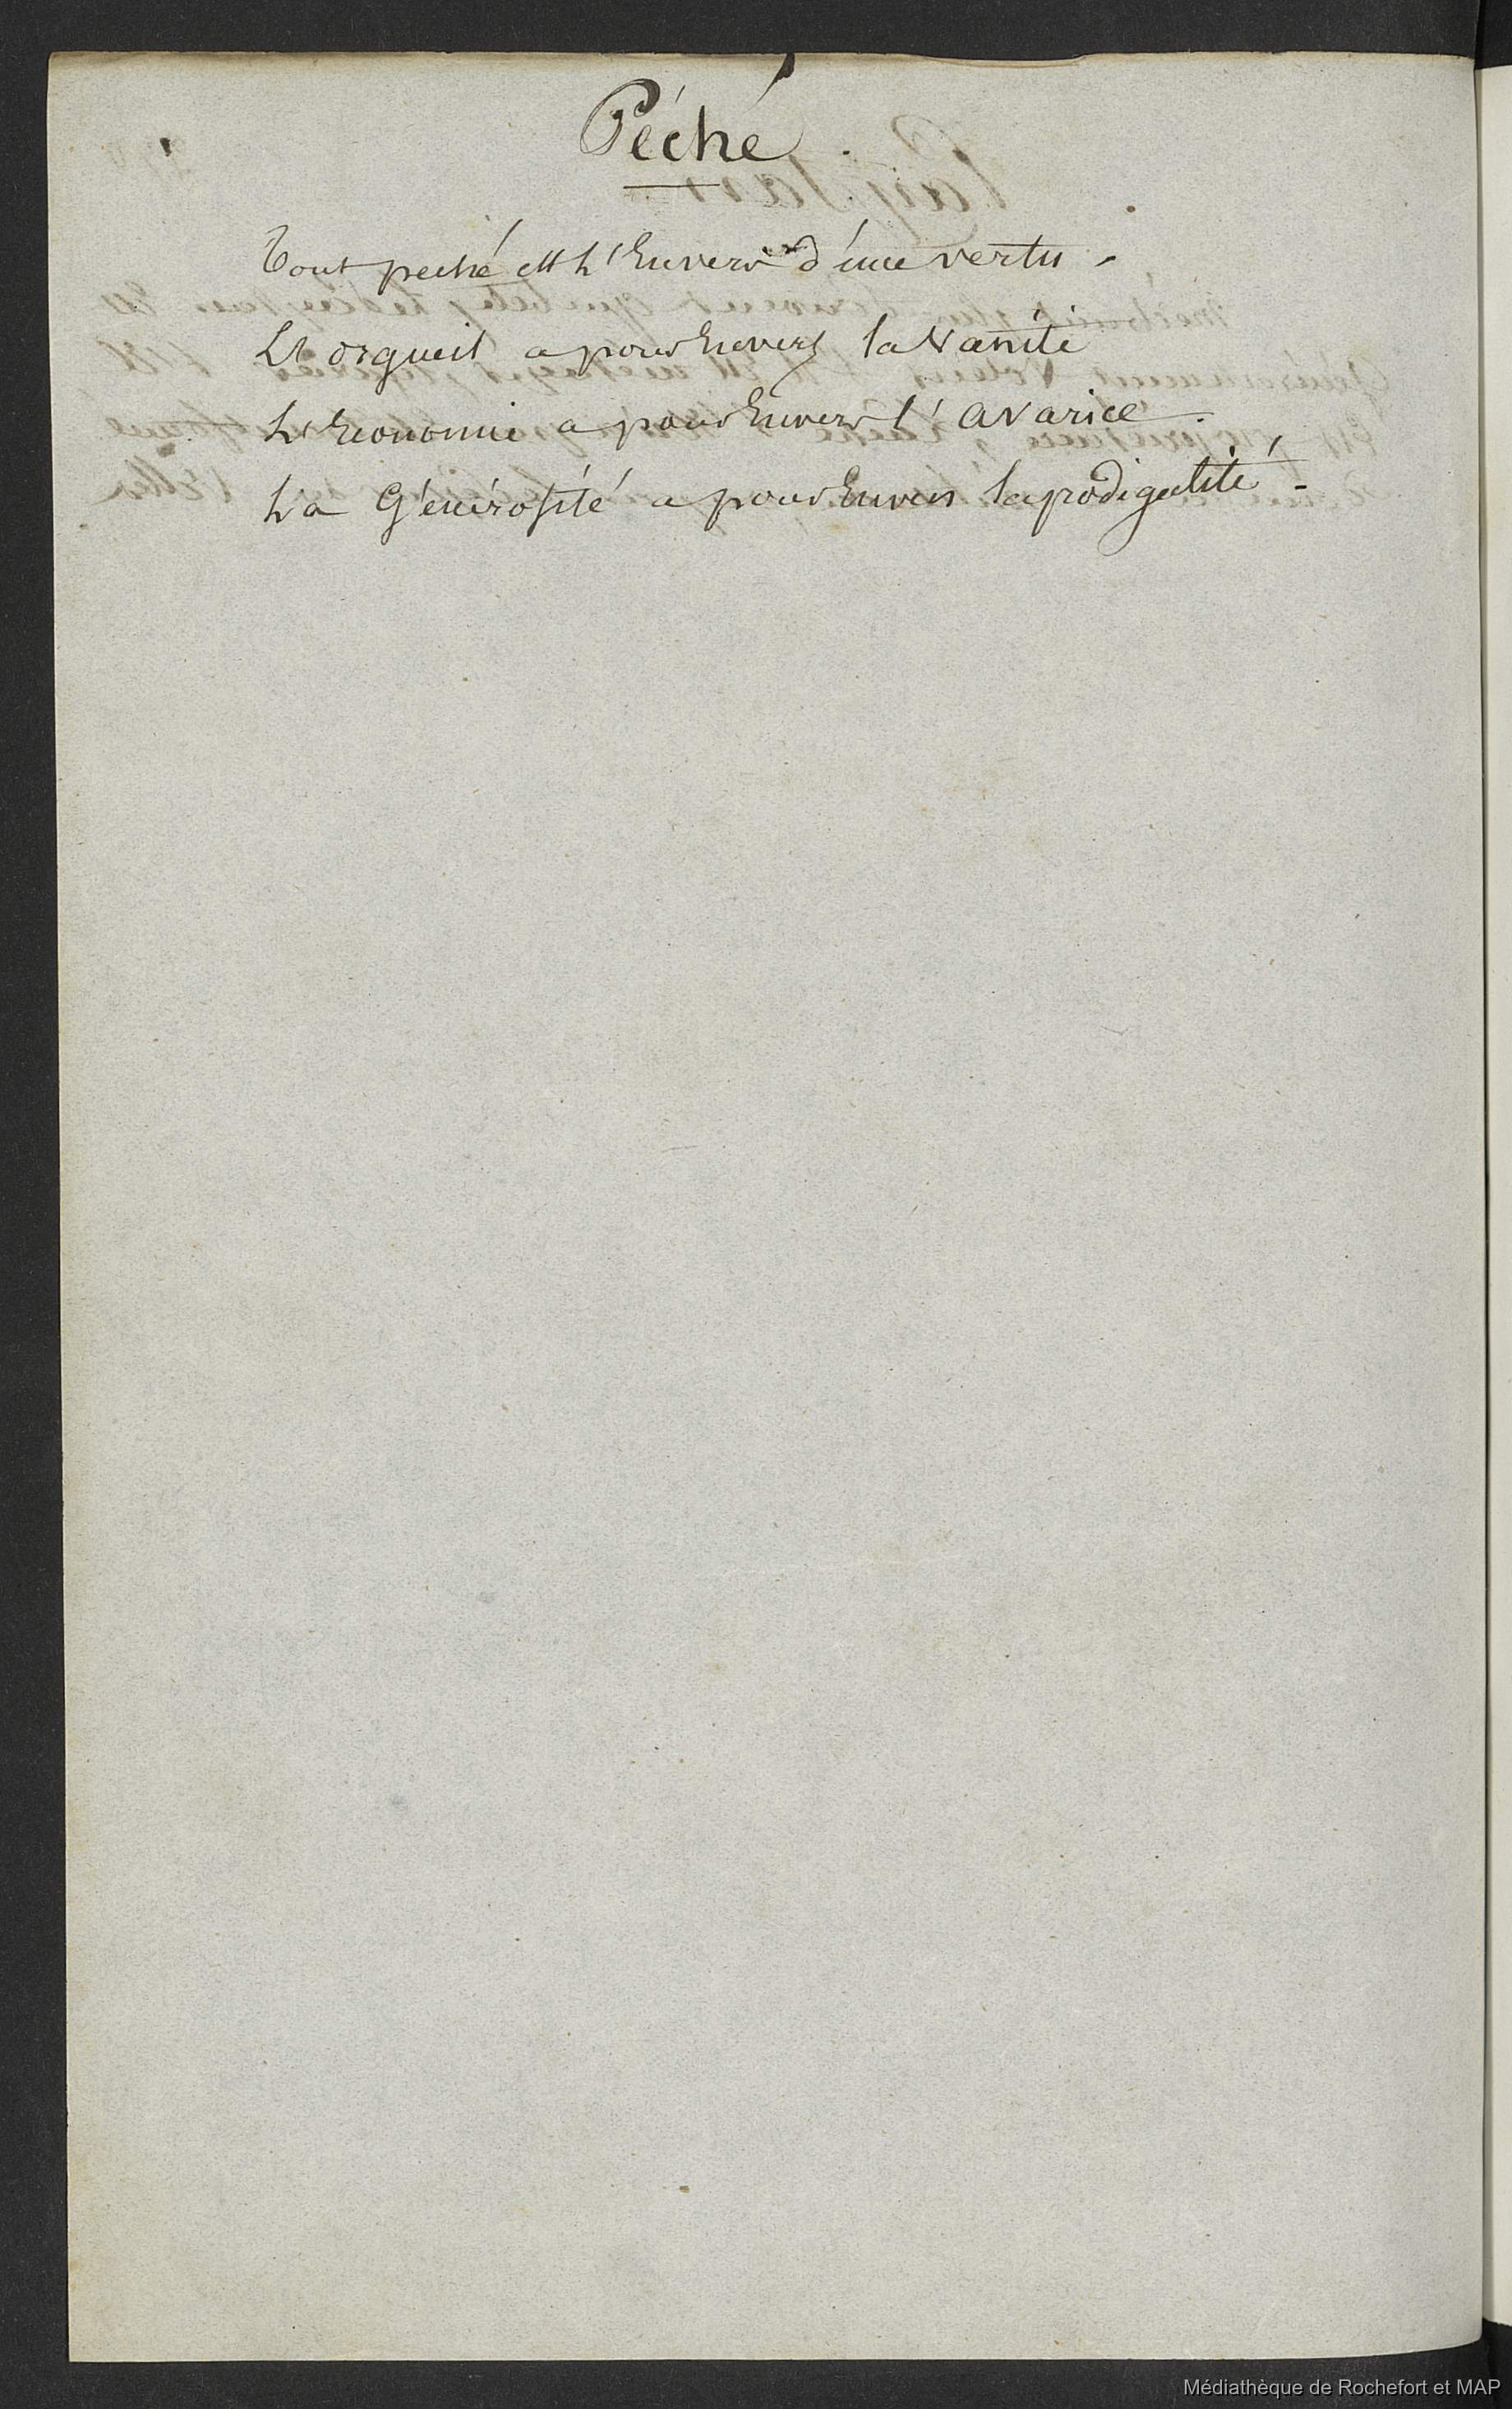 Péché.
Tout peché est L'Envers d'une vertu.
L'orgueil a pour Envers la Vanité
L'Economie a pour Envers l'avarice.
La Générosité a pour Envers la prodigalité.
Médiathèque de Rochefort et MAP